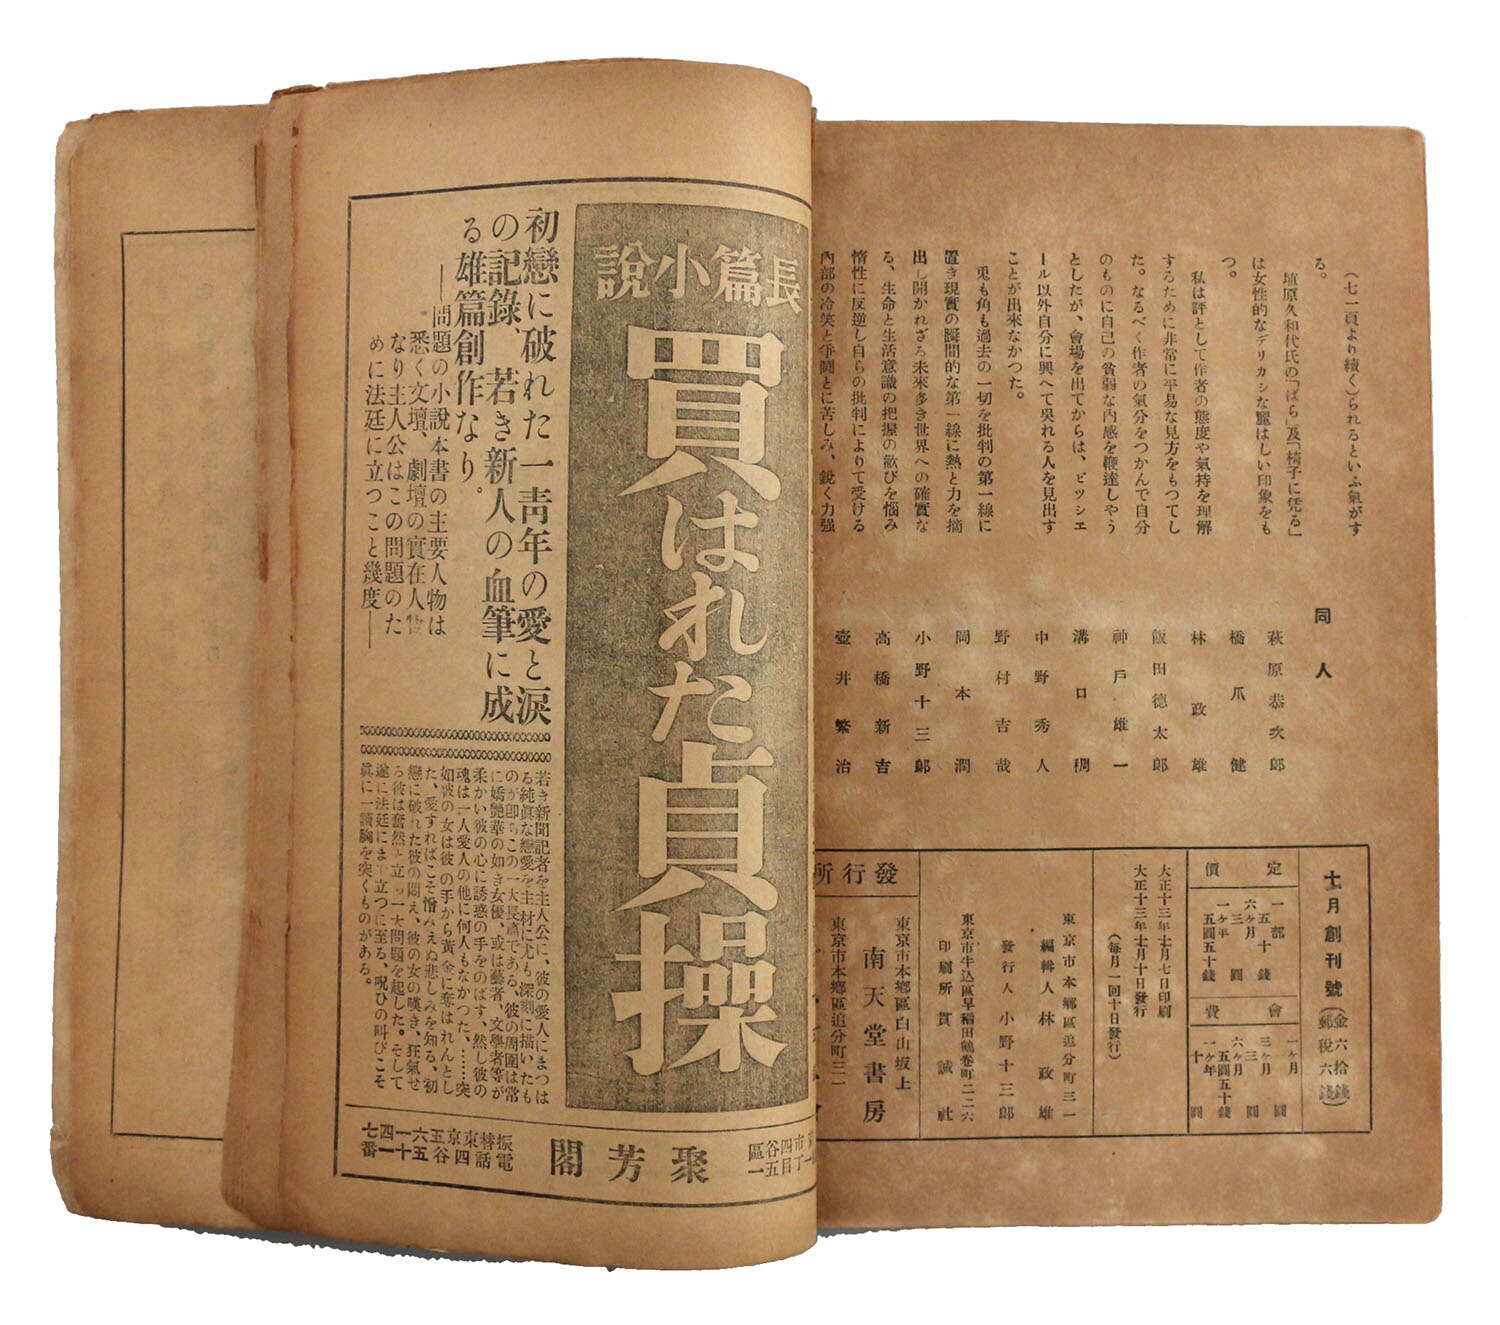 (七一頁より續く)られるといふ氣がす
る。
埴原久和代氏の「ばら」及「椅子に凭る」
は女性的なデリカシな麗はしい印象をも
つ。
私は評として作者の態度や氣持を理解
するために非常に平易な見方をもつてし
た。なるべく作者の氣分をつかんで自分
のものに自己の貧弱な内感を鞭達しやう
としたが、會場を出てからは、ビツシエ
ール以外自分に興へて呉れる人を見出す
ことが出來なかつた。
兎も角も過去の一切を批判の第一線に
置き現實の瞬間的な第一線に熱と力を摘
出し開かれざる未來多き世界への確實な
る、生命と生活意識の把握の歡びを惱み
惰性に反逆し自らの批判によりて受ける
内部の冷笑と爭鬪とに苦しみ、鋭く力强
同人
萩原恭次郎
橋爪健
林政雄
飯田德太郎
神戸雄一
溝口稠
中野秀人
野村吉哉
岡本潤
小野十三郎
高橋新吉
壺井繁治
十月創刊號(金六拾錢 郵税六錢)
定價
一部 五十錢
六ケ月 三圓
一ケ年 五圓五十錢
會費
一ケ月 一圓
三ケ月 三圓
六ケ月 五圓五十錢
一ケ年 十圓
大正十三年十月七日印刷
大正十三年十月十日發行
(毎月一回十日發行)
東京市本鄕區追分町三一
編輯人 林政雄
發行人 小野十三郎
東京市牛込區早稻田鶴卷町二二六
印刷所 貫誠社
發行所
東京市本鄕區白山坂上
南天堂書房
東京市本鄕區追分町三一
長篇小說
買はれた貞操
初戀に破れた一靑年の愛と淚
の記錄、若き新人の血筆に成
る雄篇創作なり。
——問題の小說本書の主要人物は
悉く文壇、劇壇の實在人物
なり主人公はこの問題のた
めに法廷に立つこと幾度——
若き新聞記者を主人公に、彼の愛人にまつは
る純眞な戀愛を主材に尤も深刻に描いたも
のが卽ちこの一大長篇である。彼の周圍は常
に嬌艷華の如き女優、或は藝者、文學者等が
柔かい彼の心に誘惑の手をのばす、然し彼の
魂は一人愛人の他に何人もなかつた、……突
如彼の女は彼の手から黃金に奪はれんとし
た、愛すればこそ憎みえぬ悲しみを知る、初
戀に破れた彼の悶え、彼の女の嘆き、狂氣せ
る彼は奮然と立つ一大問題を起した。そして
遂に法廷にまで立つに至る、呪ひの叫びこそ
眞に一讀胸を突くものがある。
市四谷區
一丁目五一
聚芳閣
振替東京五六一四七
電話四谷五十一番